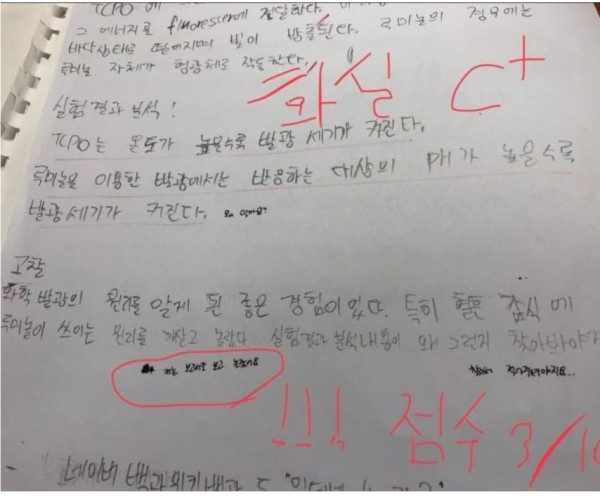 TCPO에
그 에너지로 fluorescer에 전달한다.
바닥상태로 떨어지며 빛이 방출된다. 루미놀의 경우에는
루미놀 자체가 형광체로 작용한다.
화실 C+
실험결과 분석!
TCPO는 온도가 높을수록 발광 세기가 커진다.
루미놀을 이용한 발광에서는 반응하는 대상의 pH가 높을수록
발광세기가 커진다. 왜 일까요?
고찰
화학 발광의 원리를 알게 된 좋은 경험이었다. 특히 혈흔 감식에
루미놀이 쓰이는 원리를 깨닫고 놀랐다. 실험결과 분석내용이 왜 그런지 찾아봐야
저는 보고서를 보고 놀랐어요
찾아서 적어줬어야지요...
!!! 점수 3/10
- 네이버 백과, 위키백과